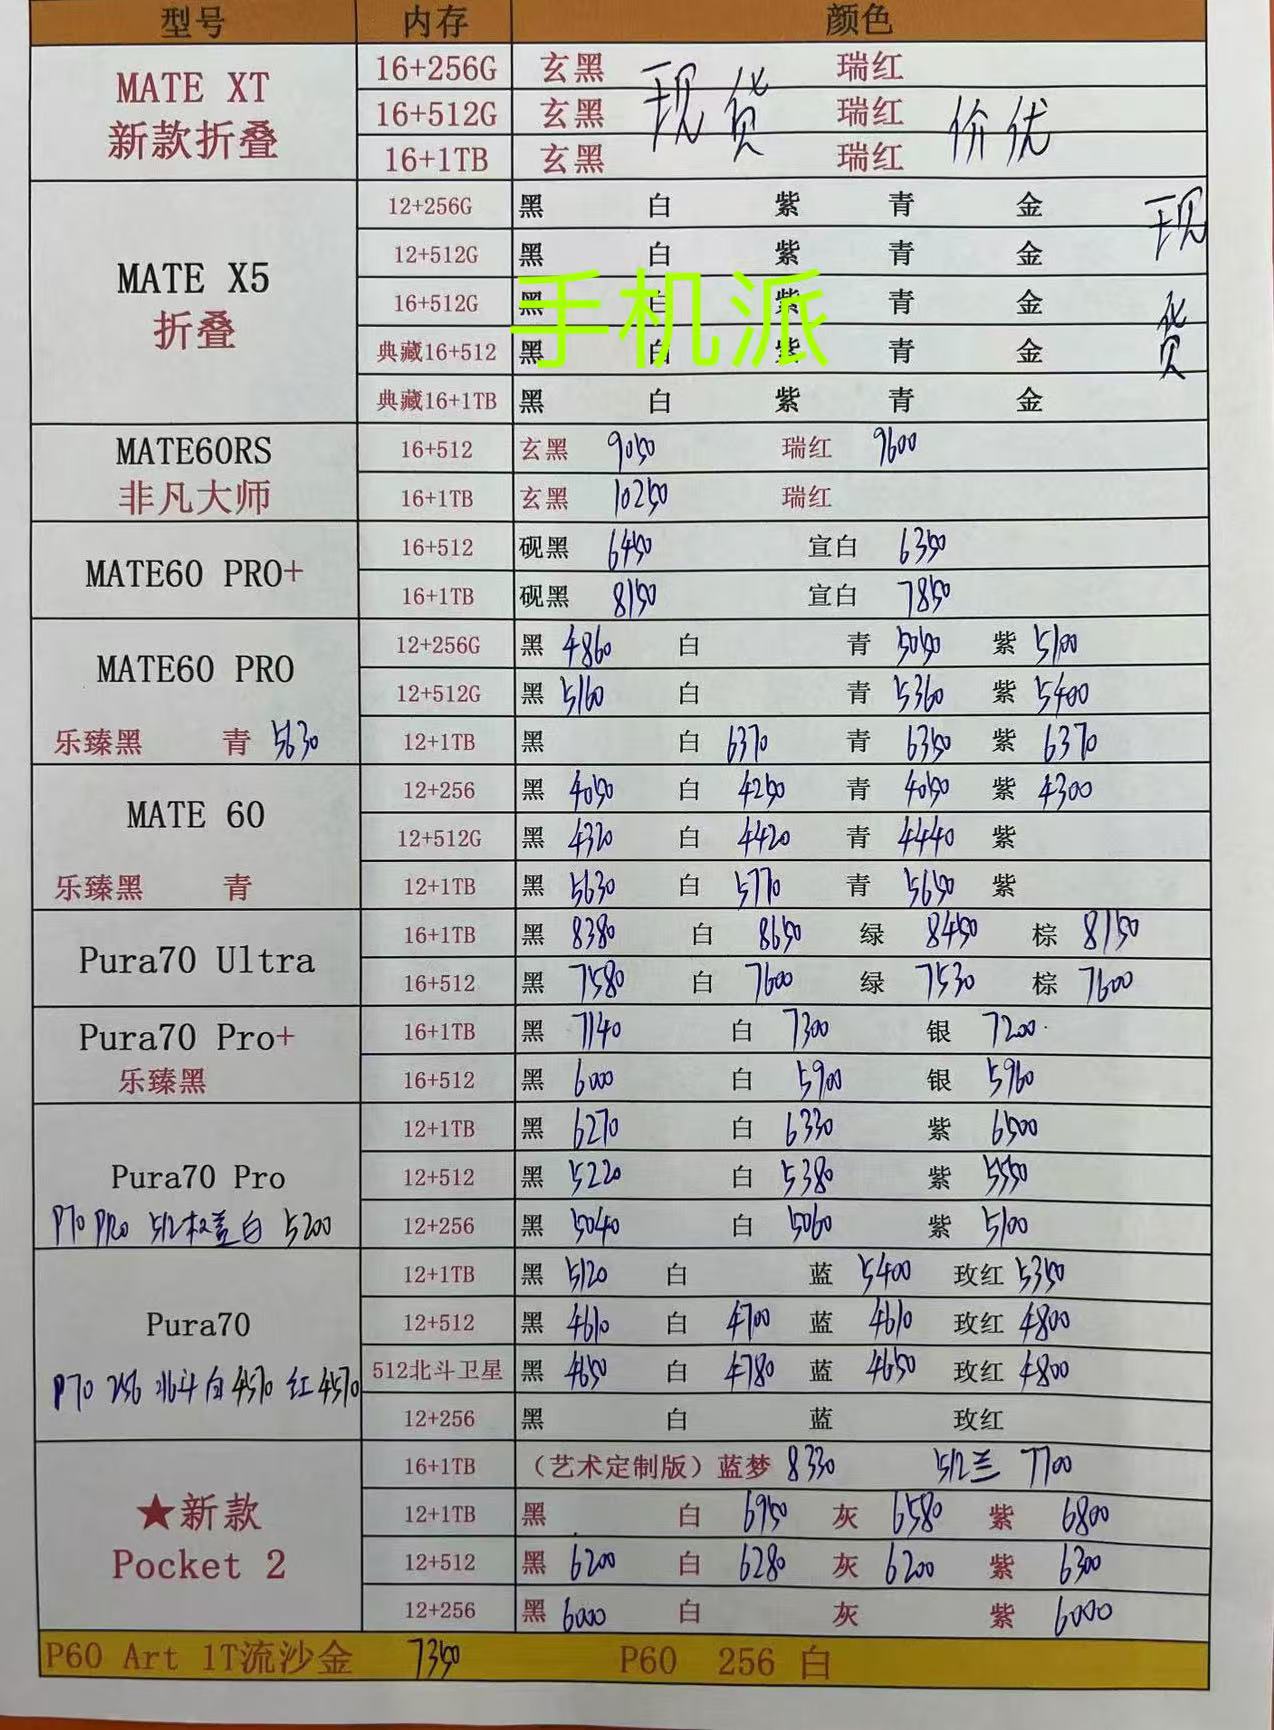 型号 内存 颜色
MATE XT 新款折叠
16+256G 玄黑 瑞红
16+512G 玄黑 瑞红
16+1TB 玄黑 瑞红
现货 价优
MATE X5 折叠
12+256G 黑 白 紫 青 金
12+512G 黑 白 紫 青 金
16+512G 黑 白 紫 青 金
典藏16+512 黑 白 紫 青 金
典藏16+1TB 黑 白 紫 青 金
现货
手机派
MATE60RS 非凡大师
16+512 玄黑 9050 瑞红 9600
16+1TB 玄黑 10250 瑞红
MATE60 PRO+
16+512 砚黑 6450 宣白 6350
16+1TB 砚黑 8150 宣白 7850
MATE60 PRO
乐臻黑 青 5630
12+256G 黑 4860 白 青 5050 紫 5100
12+512G 黑 5160 白 青 5360 紫 5400
12+1TB 黑 白 6370 青 6350 紫 6370
MATE 60
乐臻黑 青
12+256 黑 4050 白 4250 青 4050 紫 4300
12+512G 黑 4320 白 4420 青 4440 紫
12+1TB 黑 5630 白 5770 青 5650 紫
Pura70 Ultra
16+1TB 黑 8380 白 8650 绿 8450 棕 8150
16+512 黑 7580 白 7600 绿 7530 棕 7600
Pura70 Pro+
乐臻黑
16+1TB 黑 7140 白 7300 银 7200
16+512 黑 6000 白 5900 银 5960
Pura70 Pro
P70 PRO 512权益白 5200
12+1TB 黑 6270 白 6330 紫 6500
12+512 黑 5220 白 5380 紫 5550
12+256 黑 5040 白 5060 紫 5100
Pura70
P70 256 北斗白4570 红4570
12+1TB 黑 5120 白 蓝 5400 玫红 5350
12+512 黑 4610 白 4700 蓝 4610 玫红 4800
512北斗卫星 黑 4650 白 4780 蓝 4650 玫红 4800
12+256 黑 白 蓝 玫红
★新款 Pocket 2
16+1TB （艺术定制版）蓝梦 8330 512兰 7700
12+1TB 黑 白 6950 灰 6580 紫 6800
12+512 黑 6200 白 6280 灰 6200 紫 6300
12+256 黑 6000 白 灰 紫 6000
P60 Art 1T流沙金 7350 P60 256 白